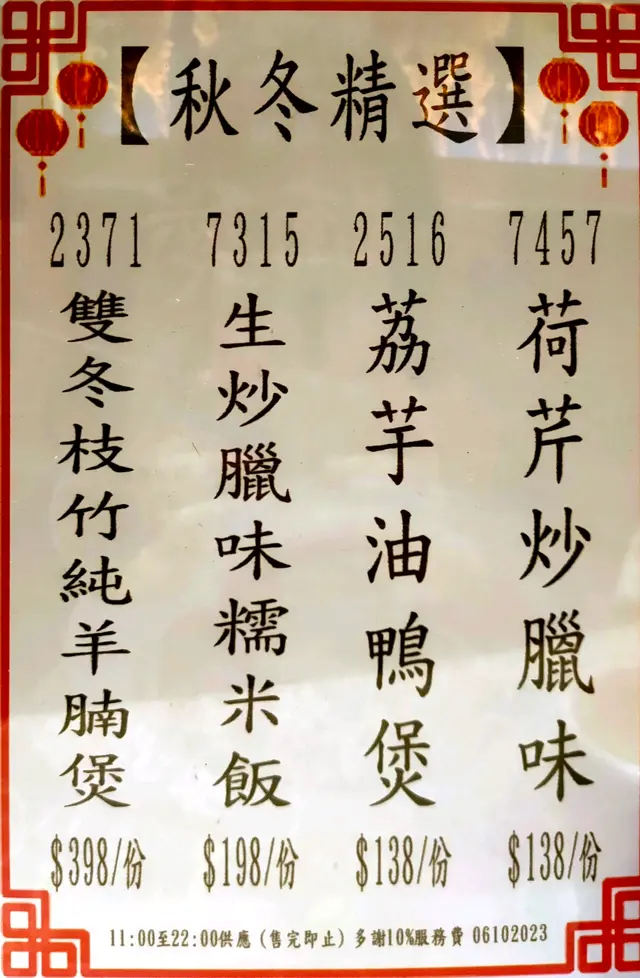 【秋冬精選】
7457
荷芹炒臘味
$138/份
2516
荔芋油鴨煲
$138/份
7315
生炒臘味糯米飯
$198/份
2371
雙冬枝竹純羊腩煲
$398/份
11:00至22:00供應 (售完即止) 多謝10%服務費 06102023